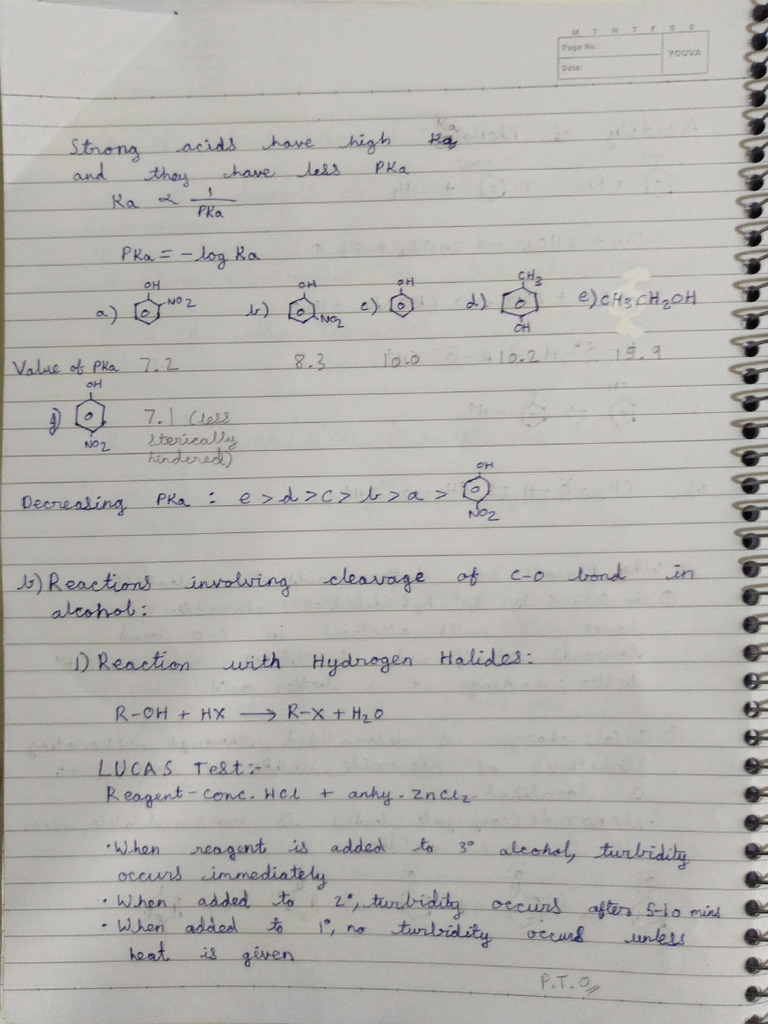 M T W T F S S
Page No.:
Date:
YOUVA
Strong acids have high Ka
and they have less PKa
Ka ∝ 1/PKa
PKa = - log Ka
a) OH NO2 b) OH NO2 c) OH d) CH3 OH e) CH3CH2OH
Value of PKa 7.2 8.3 10.0 10.2 15.9
g) OH NO2 7.1 (less
sterically
hindered)
Decreasing PKa : e > d > c > b > a > OH NO2
b) Reactions involving cleavage of C-O bond in
alcohol:
1) Reaction with Hydrogen Halides:
R-OH + HX ⟶ R-X + H2O
LUCAS Test:-
Reagent - conc. HCl + anhy. ZnCl2.
• When reagent is added to 3° alcohol, turbidity
occurs immediately
• When added to 2°, turbidity occurs after 5-10 mins
• When added to 1°, no turbidity occurs unless
heat is given
P.T.O